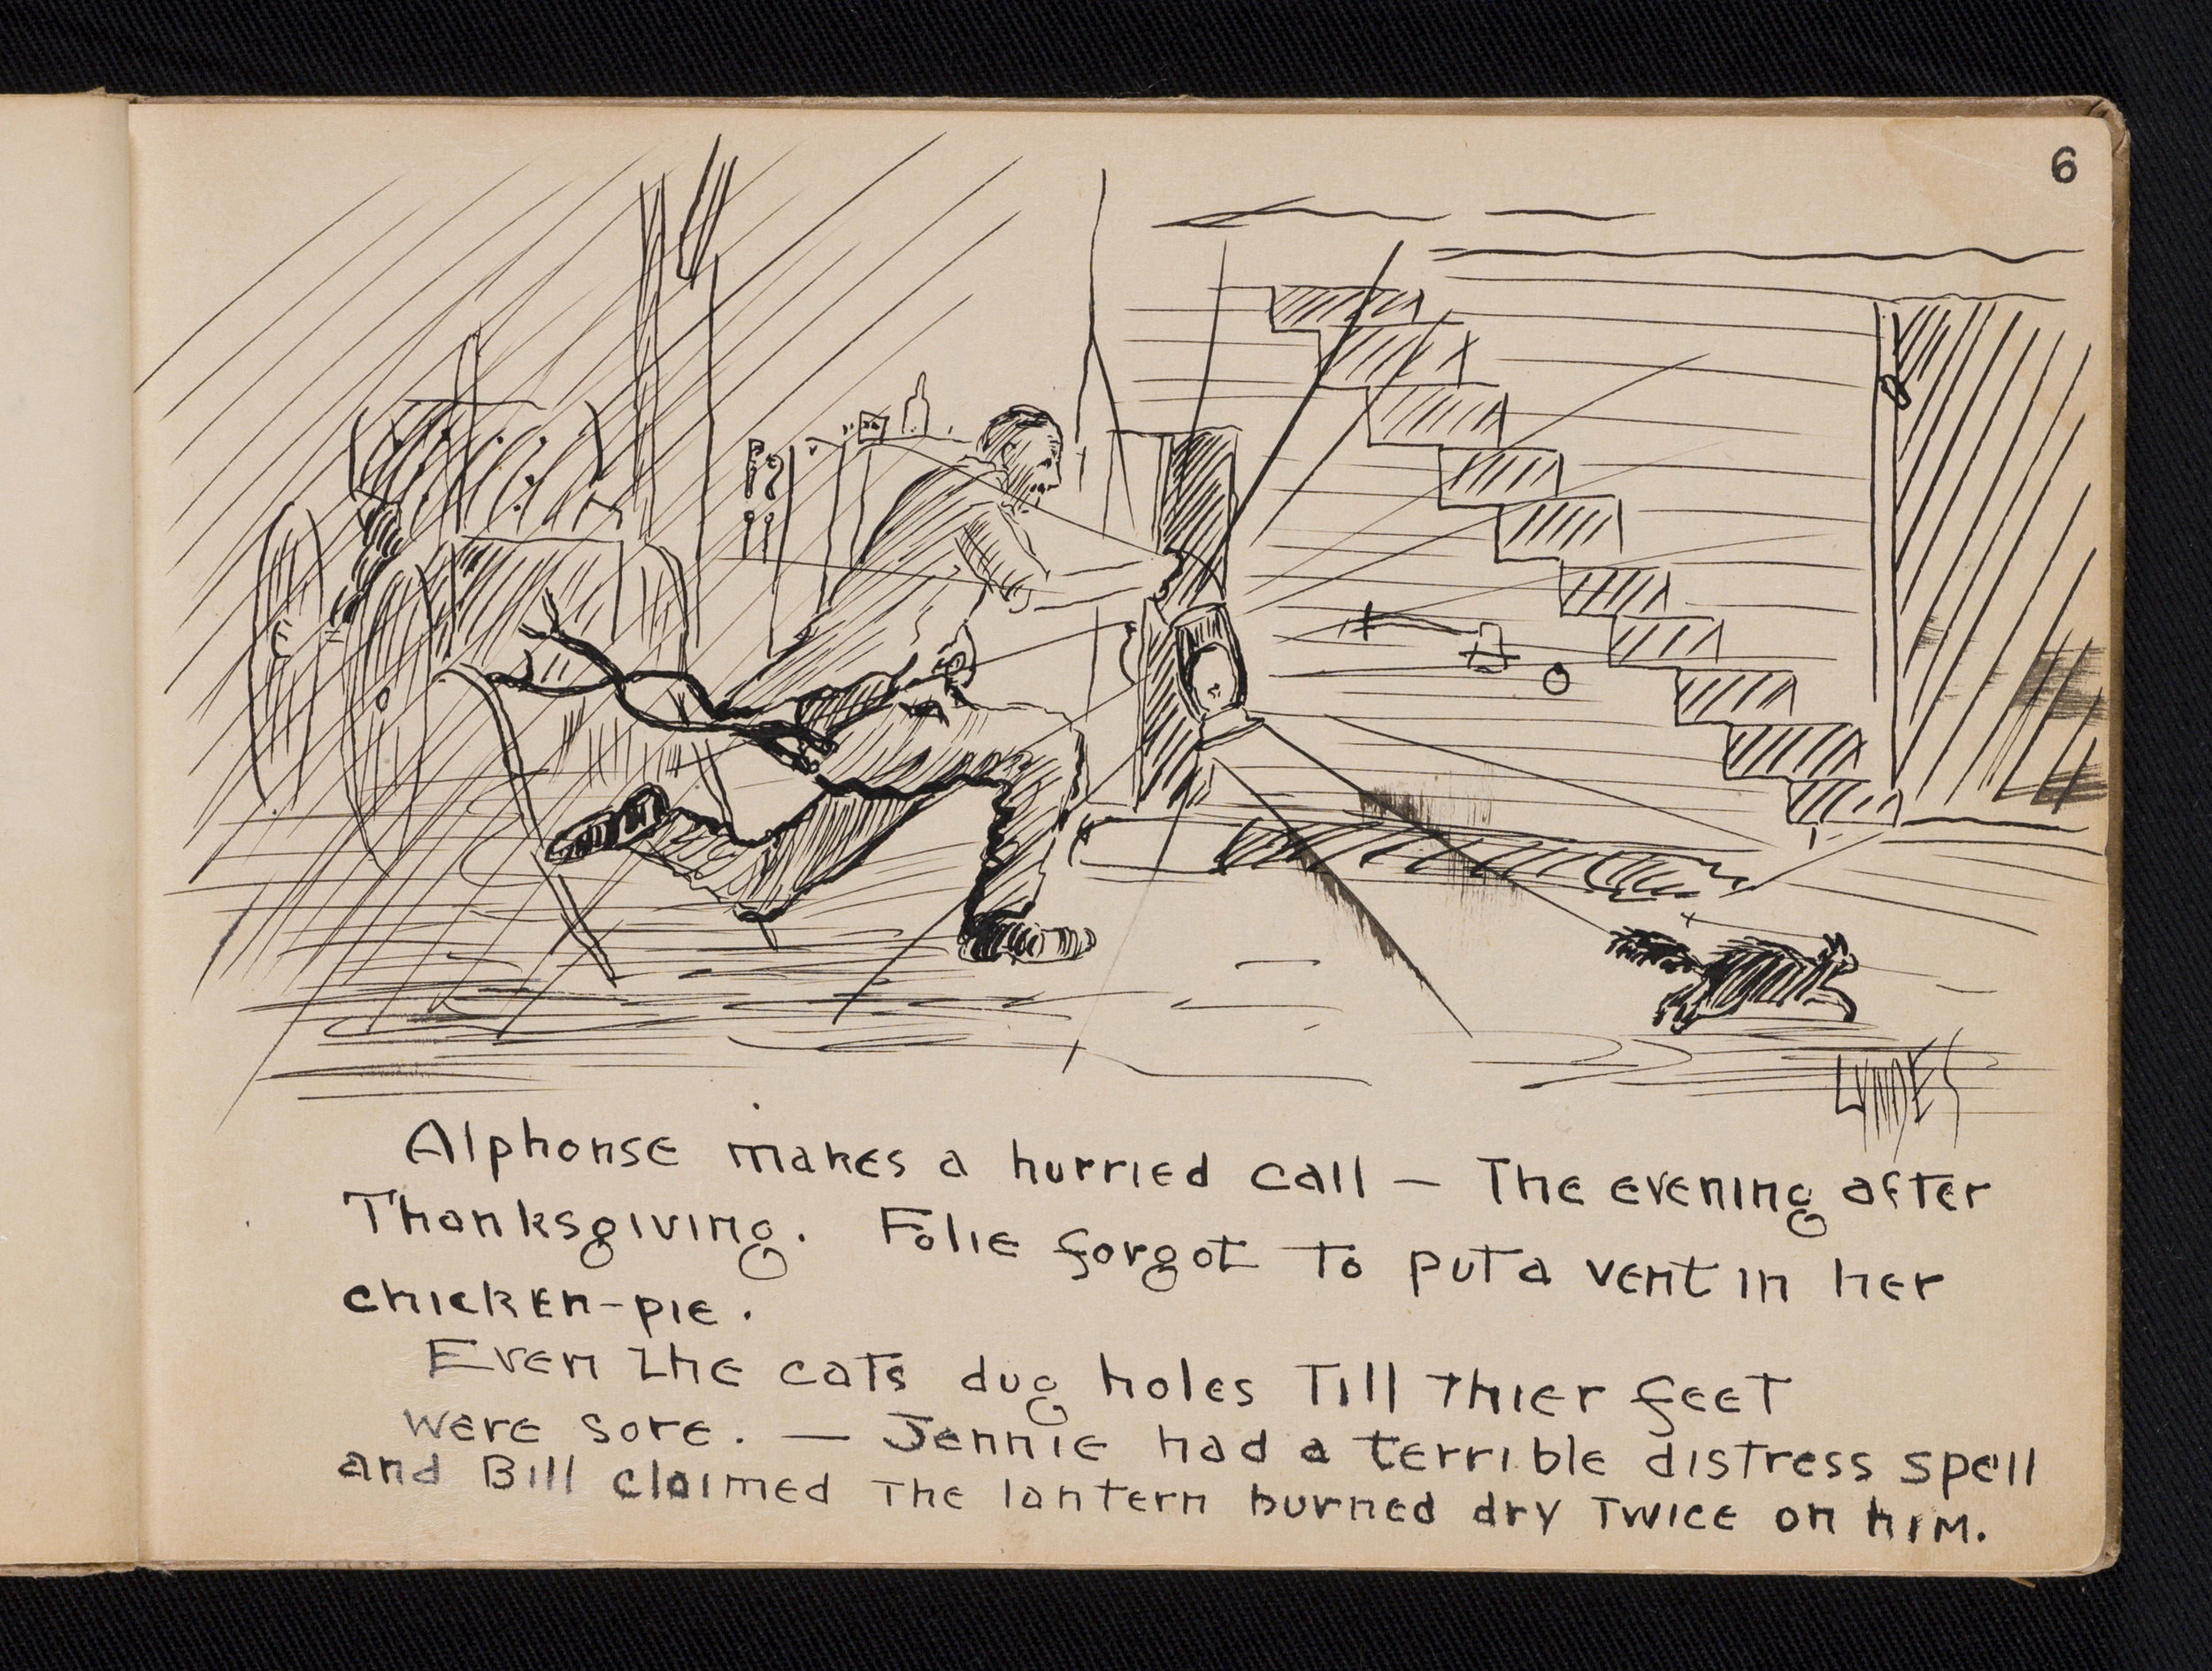 6
LYNDES
Alphonse makes a hurried call — The evening after
Thanksgiving. Folie forgot to put a vent in her
chicken-pie.
Even the cats dug holes till thier feet
were sore. — Jennie had a terrible distress spell
and Bill claimed the lantern burned dry twice on him.